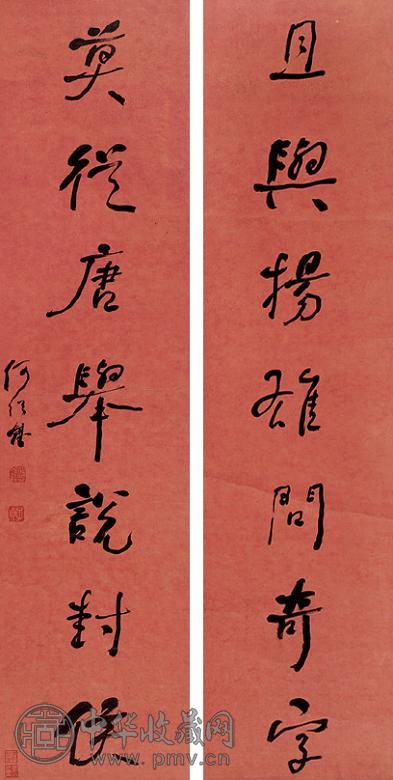 且與揚雄問奇字
莫從唐舉說封侯
何紹基
中华收藏网
www.pmv.cn